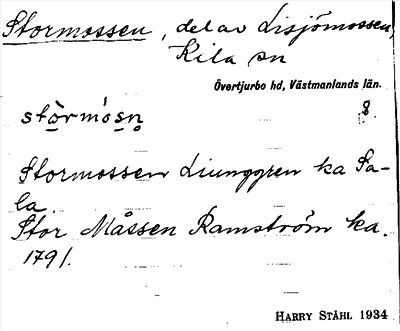 Stormossen, del av Lisjömossen,
Kila sn
Övertjurbo hd, Västmanlands län.
stòrmósn 8.
Stormossen Liunggren ka Sa-
la.
Stor Måssen Ramström ka.
1791.
HARRY STÅHL 1934